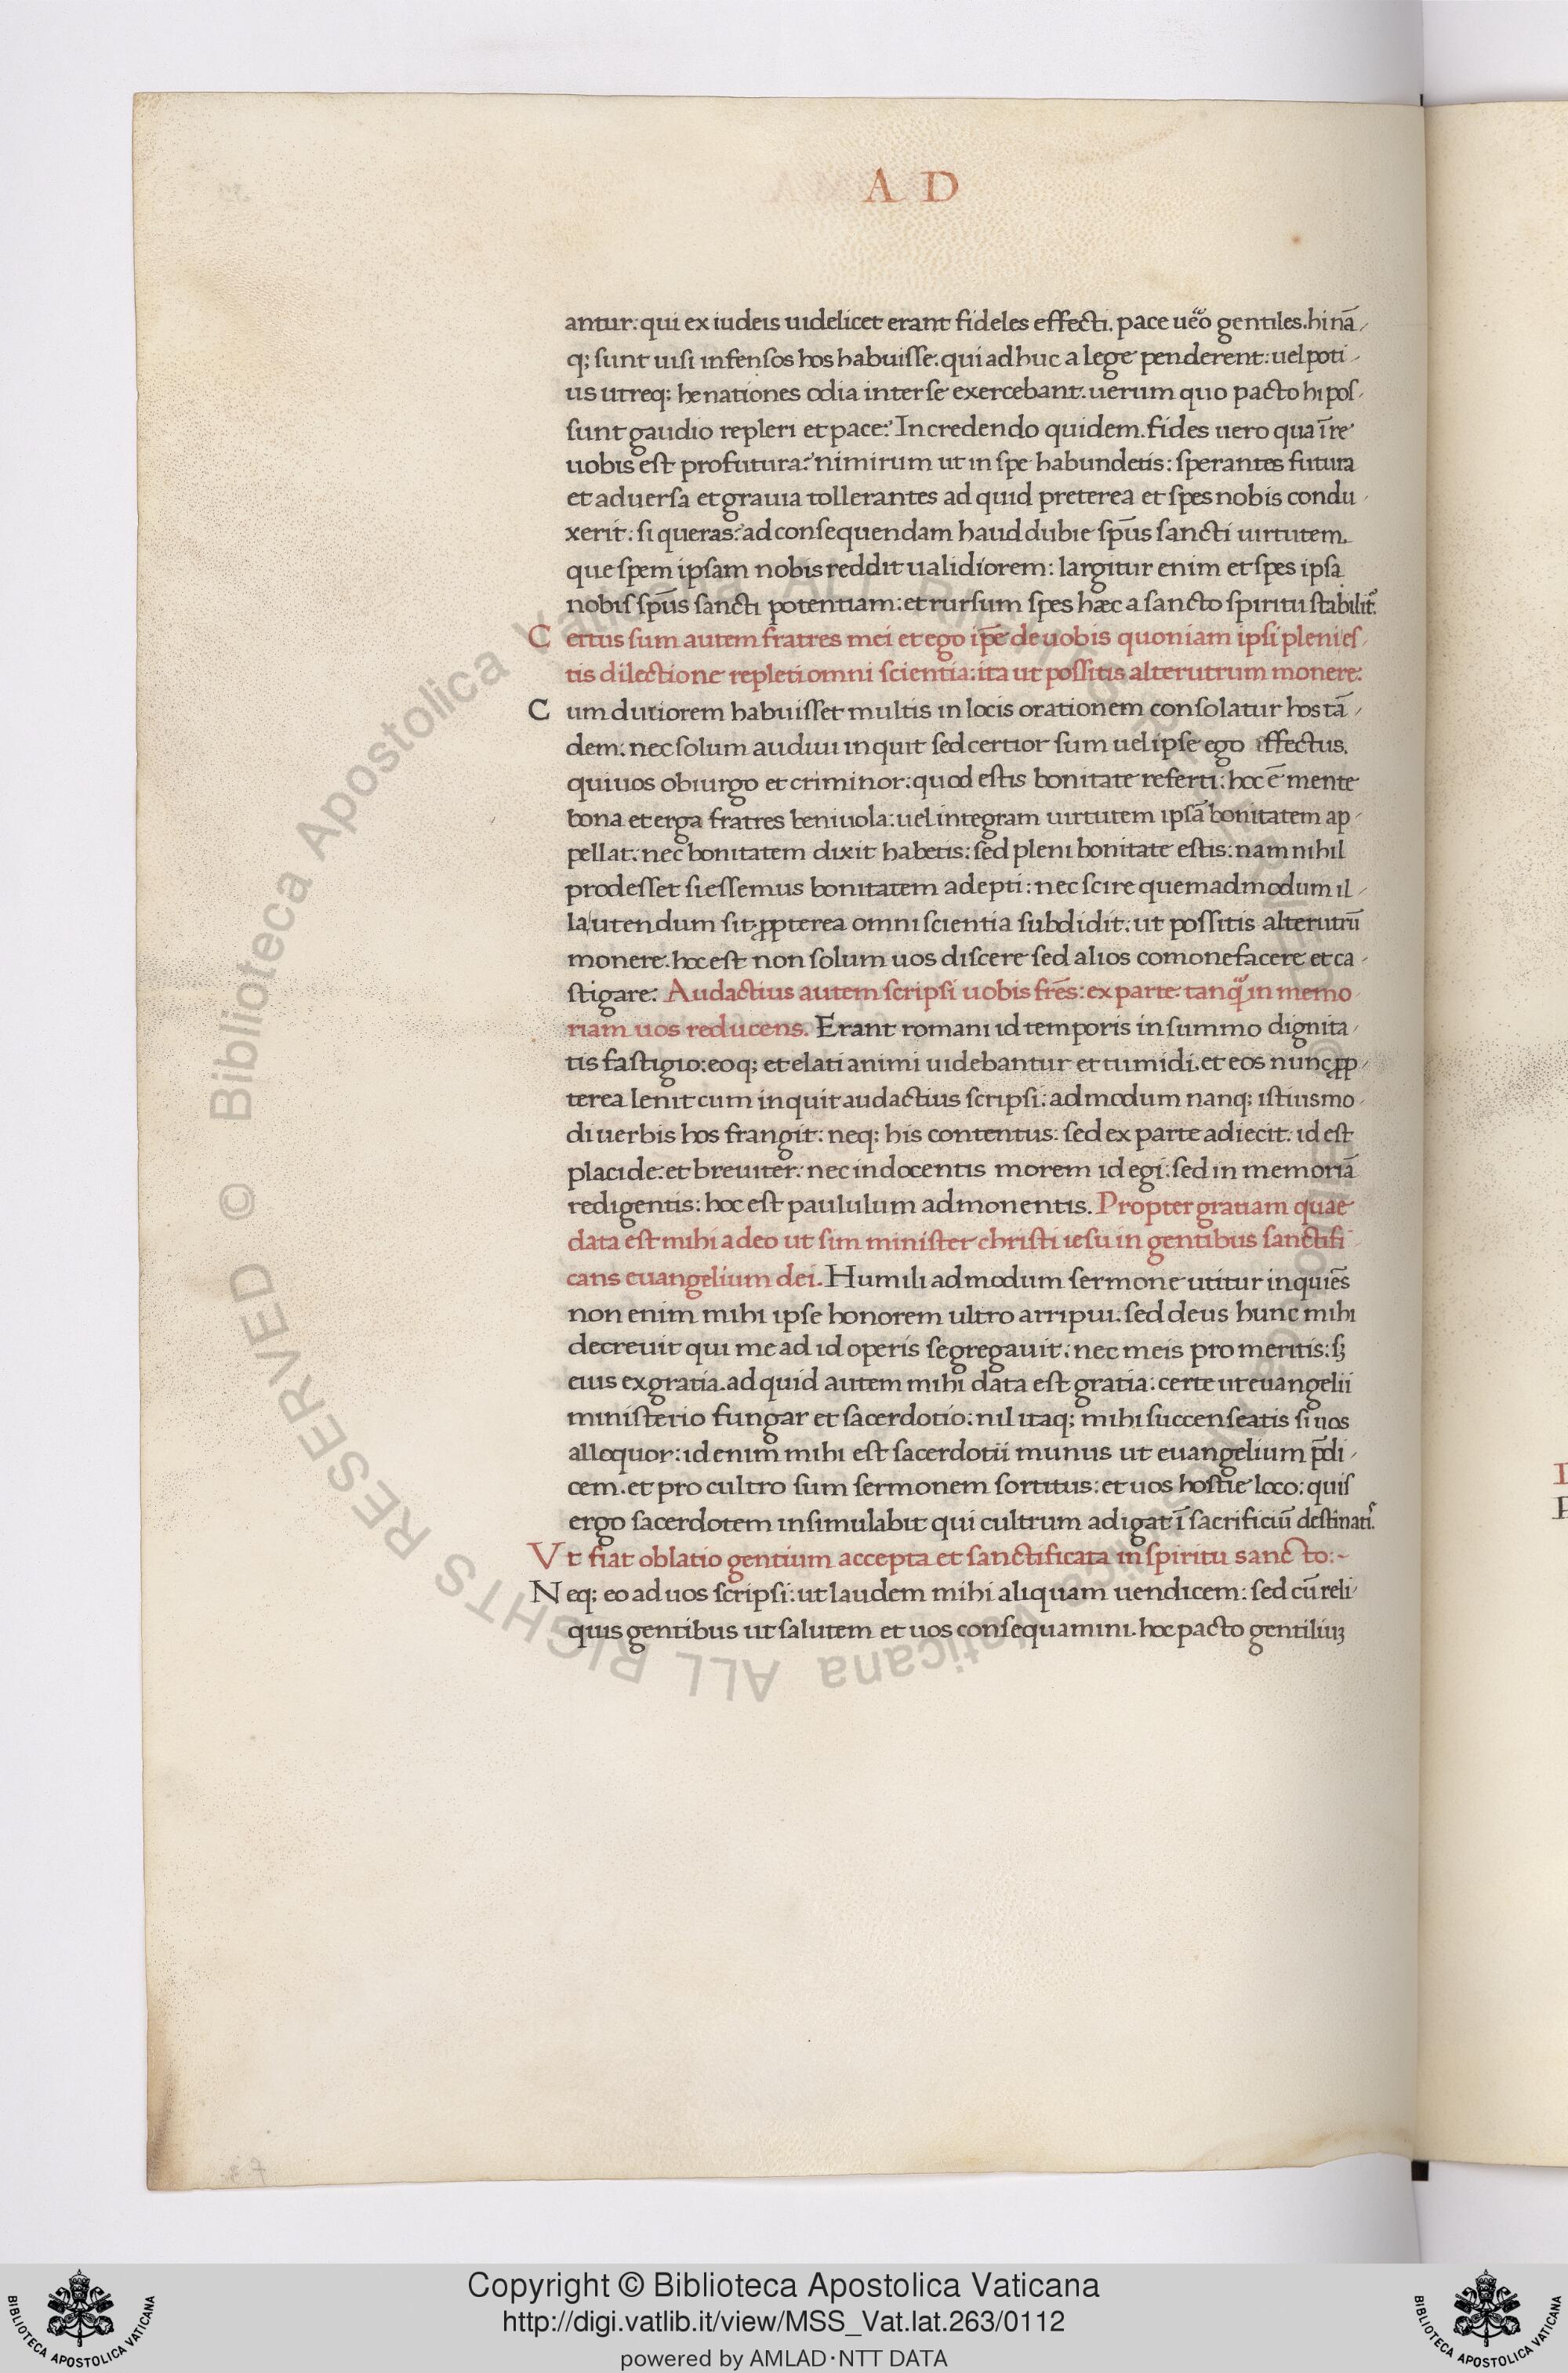 A D
antur: qui ex iudeis uidelicet erant fideles effecti. pace ue͛o gentiles. hi nā
q; sunt uisi infensos hos habuisse: qui adhuc a lege penderent: uel poti
us utreq; he nationes odia inter se exercebant. uerum quo pacto hi pos
sunt gaudio repleri et pace? In credendo quidem. fides uero qua ī re
uobis est profutura? nimirum ut in spe habundetis: sperantes futura
et aduersa et grauia tollerantes ad quid preterea et spes nobis condu
xerit: si queras? ad consequendam haud dubie spūs sancti uirtutem.
que spem ipsam nobis reddit ualidiorem: largitur enim et spes ipsa
nobis spūs sancti potentiam: et rursum spes hæc a sancto spiritu stabilit᷑.
C ertus sum autem fratres mei et ego ip̄e de uobis quoniam ipsi pleni es
tis dilectione repleti omni scientia: ita ut possitis alterutrum monere:
C um duriorem habuisset multis in locis orationem consolatur hos tā
dem. nec solum audiui inquit sed certior sum uel ipse ego effectus.
qui uos obiurgo et criminor: quod estis bonitate referti: hoc ē mente
bona et erga fratres beniuola: uel integram uirtutem ipsā bonitatem ap
pellat. nec bonitatem dixit habetis: sed pleni bonitate estis: nam nihil
prodesset si essemus bonitatem adepti: nec scire quemadmodum il
la utendum sit. ꝓpterea omni scientia subdidit: ut possitis alterutrū
monere. hoc est non solum uos discere sed alios comonefacere et ca
stigare: Audactius autem scripsi uobis frēs: ex parte tanq̃ in memo
riam uos reducens. Erant romani id temporis in summo dignita
tis fastigio: eoq; et elati animi uidebantur et tumidi. et eos nunc ꝓp
terea lenit cum inquit audactius scripsi: admodum nanq; istiusmo
di uerbis hos frangit: neq; his contentus: sed ex parte adiecit: id est
placide et breuiter: nec in docentis morem id egi: sed in memoriā
redigentis: hoc est paululum admonentis. Propter gratiam quae
data est mihi a deo ut sim minister christi iesu in gentibus sanctifi
cans euangelium dei. Humili admodum sermone utitur inquiēs
non enim mihi ipse honorem ultro arripui: sed deus hunc mihi
decreuit qui me ad id operis segregauit: nec meis pro meritis: sꝫ
eius ex gratia. ad quid autem mihi data est gratia: certe ut euangelii
ministerio fungar et sacerdotio: nil itaq; mihi succenseatis si uos
alloquor: id enim mihi est sacerdotii munus ut euangelium p̄di
cem. et pro cultro sum sermonem sortitus: et uos hostie loco: quis
ergo sacerdotem insimulabit qui cultrum adigat ī sacrificiū destinati᷑.
Vt fiat oblatio gentium accepta et sanctificata in spiritu sancto:~
N eq; eo ad uos scripsi: ut laudem mihi aliquam uendicem: sed cū reli
quis gentibus ut salutem et uos consequamini. hoc pacto gentiliuꝫ
Biblioteca Apostolica Vaticana ALL RIGHTS RESERVED ©
Copyright © Biblioteca Apostolica Vaticana
http://digi.vatlib.it/view/MSS_Vat.lat.263/0112
powered by AMLAD·NTT DATA
BIBLIOTECA APOSTOLICA VATICANA
BIBLIOTECA APOSTOLICA VATICANA